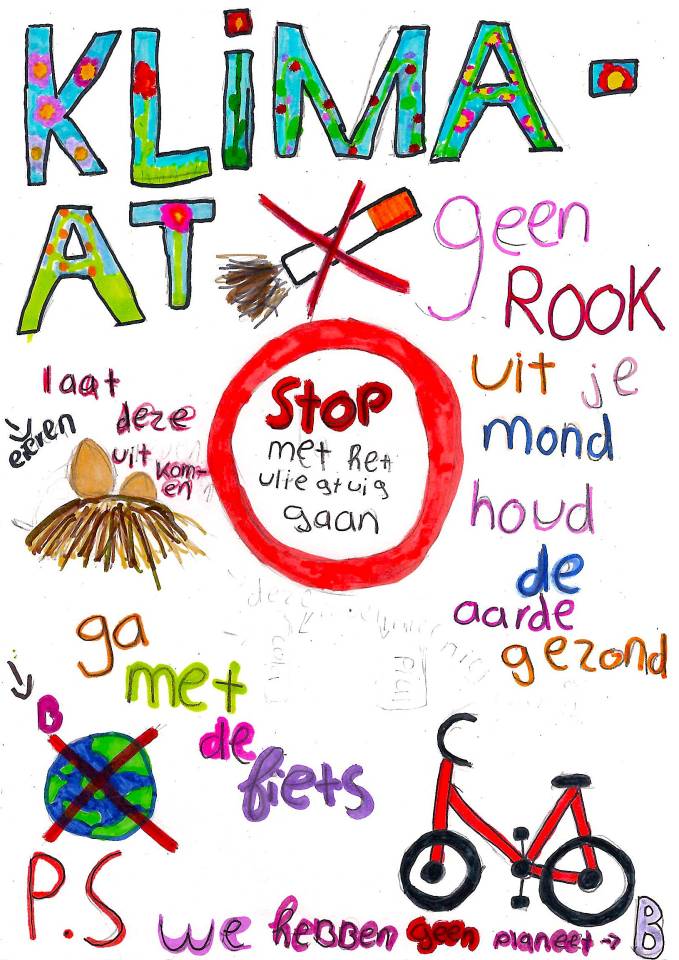 KLIMA-
AT
geen
ROOK
uit je
mond
houd
de
aarde
gezond
laat
deze
eieren
uit
kom-
en
STOP
met het
vliegtuig
gaan
ga
met
de
fiets
B
P.S
we hebben geen planeet → B